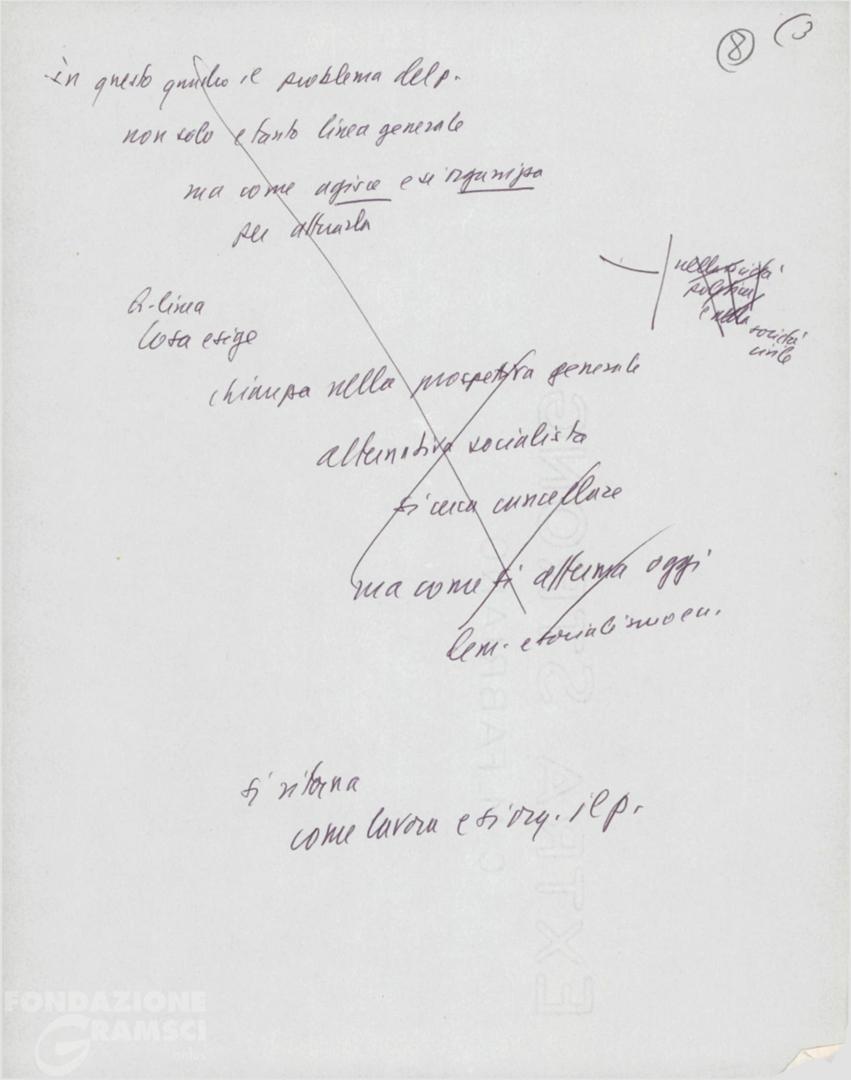 8
in questo quadro il problema del p.
non solo e tanto linea generale
ma come agisce e si organizza
per attuarla
nella società
politica
e nella
società
civile
linea
Cosa esige
chiarezza nella prospettiva generale
alternativa socialista
si cerca cancellare
ma come si afferma oggi
dem. e socialismo eu.
si ritorna
come lavora e si org. il p.
EXTRA STRONG
FABRIANO
FONDAZIONE
GRAMSCI
onlus